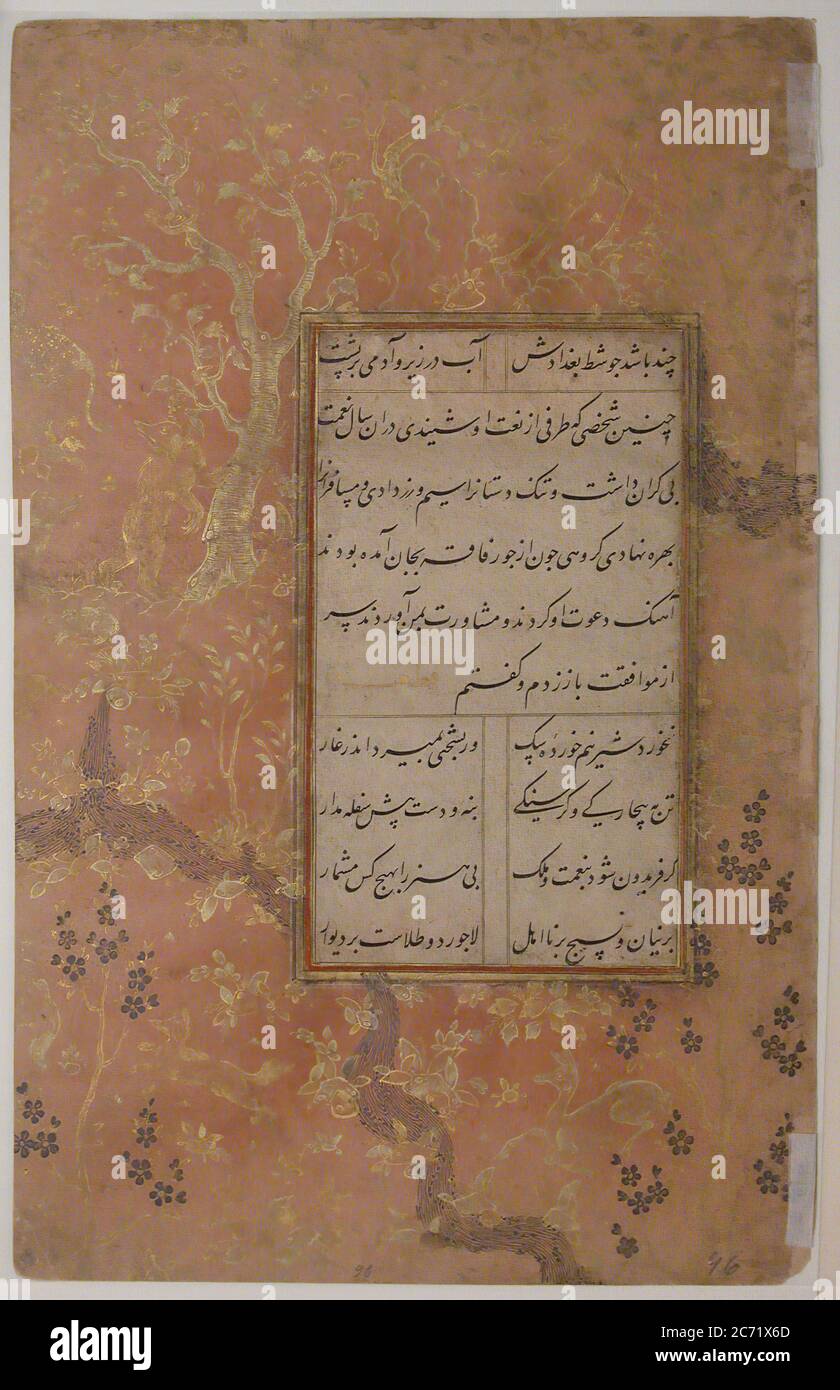 چند باشد جو شط بغدادش آب در زیر و آدمی بر پشت
چنین شخصی که طرفی از نعت او شنیدی در ان سال نعمت
بی کران داشت و تنک دستانرا سیم و زر دادی و مسافرانرا
بهره نهادی کروهی جون از جور فاقه بجان آمده بودند
آهنک دعوت او کردند و مشاورت بمن آوردند سر
از موافقت باز زدم و کفتم
نخورد شیر نیم خورده سک ور بسختی بمیرد اندر غار
تن به بیچارگی و کرسنکی بنه و دست پیش سفله مدار
کر فریدون شود بنعمت و ملک بی هنر را بهیچ کس مشمار
برنیان و نسیج بر نااهل لاجورد و طلاست بر دیوار
96
96
alamy
Image ID: 2C71X6D
www.alamy.com